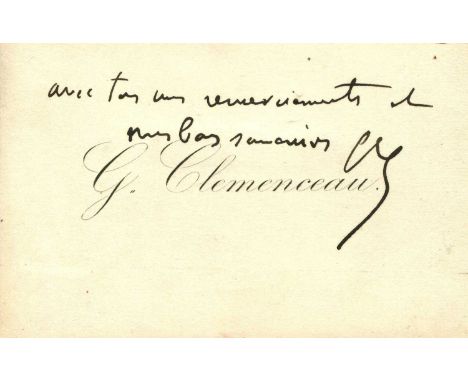 avec tous mes remerciements et
mes bons souvenirs
G. Clemenceau.